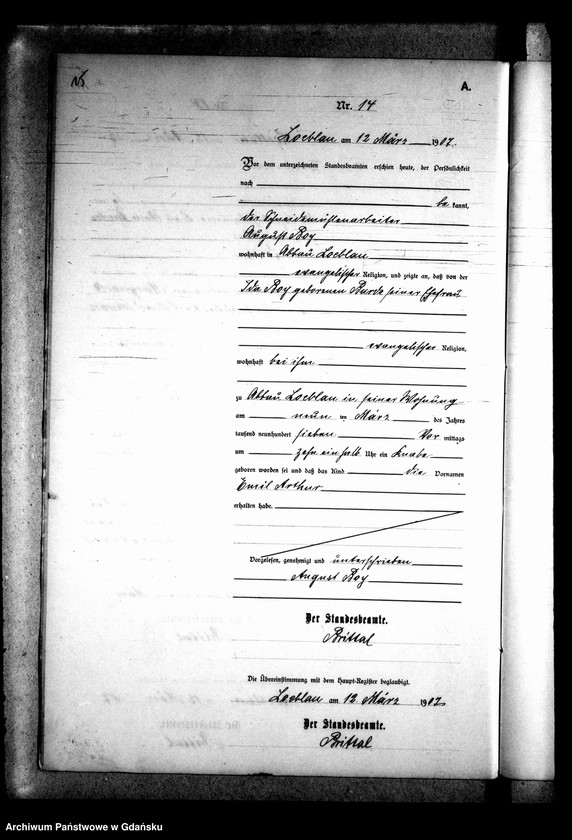 A.
Nr. 14
Loeblau am 12 März 1907.
Vor dem unterzeichneten Standesbeamten erschien heute, der Persönlichkeit
nach
be kannt,
der Schneidemühlenarbeiter
August Boy
wohnhaft in Abbau Loeblau
evangelischer Religion, und zeigte an, daß von der
Ida Boy geborenen seiner Ehefrau
evangelischer Religion,
wohnhaft bei ihm
zu Abbau Loeblau in seiner Wohnung
am neun ten März des Jahres
tausend neunhundert sieben Vor mittags
um zehn einhalb Uhr ein Knabe
geboren worden sei und daß das Kind die Vornamen
Emil Arthur
erhalten habe.
Vorgelesen, genehmigt und unterschrieben
August Boy
Der Standesbeamte.
Brittal
Die Übereinstimmung mit dem Haupt-Register beglaubigt.
Loeblau am 12 März 1907
Der Standesbeamte.
Brittal
Archiwum Państwowe w Gdańsku